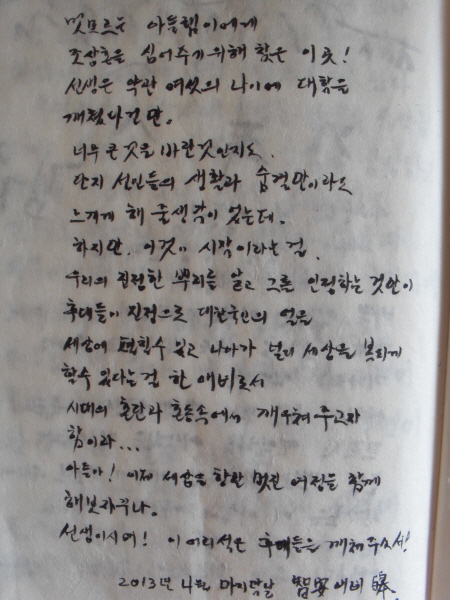 멋모르는 아들             이에게
조상혼을 심어주기 위해 찾은 이 곳!
선생은 약관 여섯의 나이에 대학을
깨쳤다건만.
너무 큰 것을 바란것인지도.
단지 선인들의 생활과 숨결만이라도
느끼게 해 줄생각이 었는데.
하지만. 이것이 시작이라는 걸.
우리의 진정한 뿌리를 알고 그를 인정하는 것만이
후대들이 진정으로 대한국인의 얼을
세상에 펼칠수 있고 나아가 널리 세상을 복되게
할수 있다는걸 한 애비로서
시대의 혼란과 혼송속에서 깨우쳐 주고자
함이라...
아들아! 이제 세상을 향한 멋진 여정을 함께
해보자꾸나.
선생이시여! 이 어리석은 후대들을 깨쳐주소서!
2013년 4월 마지막날 애비